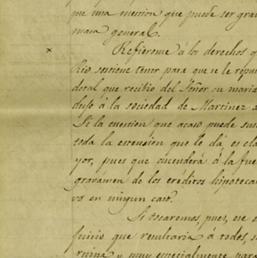 me una mencion que puede ser gra
masa general.
Refiérome á los derechos q
Rio sostiene tener para que se le repu
dotal que recibió del Señor su mari
dujo á la sociedad de Martinez
Si la cuestion que acaso puede sus
toda la estension que le da, es cla
yor, pues que escenderá á la fue
gravámen de los créditos hipoteca
vo en ningun caso.
Si tocaremos, pues, se
juicio que resultaria á todos, s
ruina y muy especialmente para